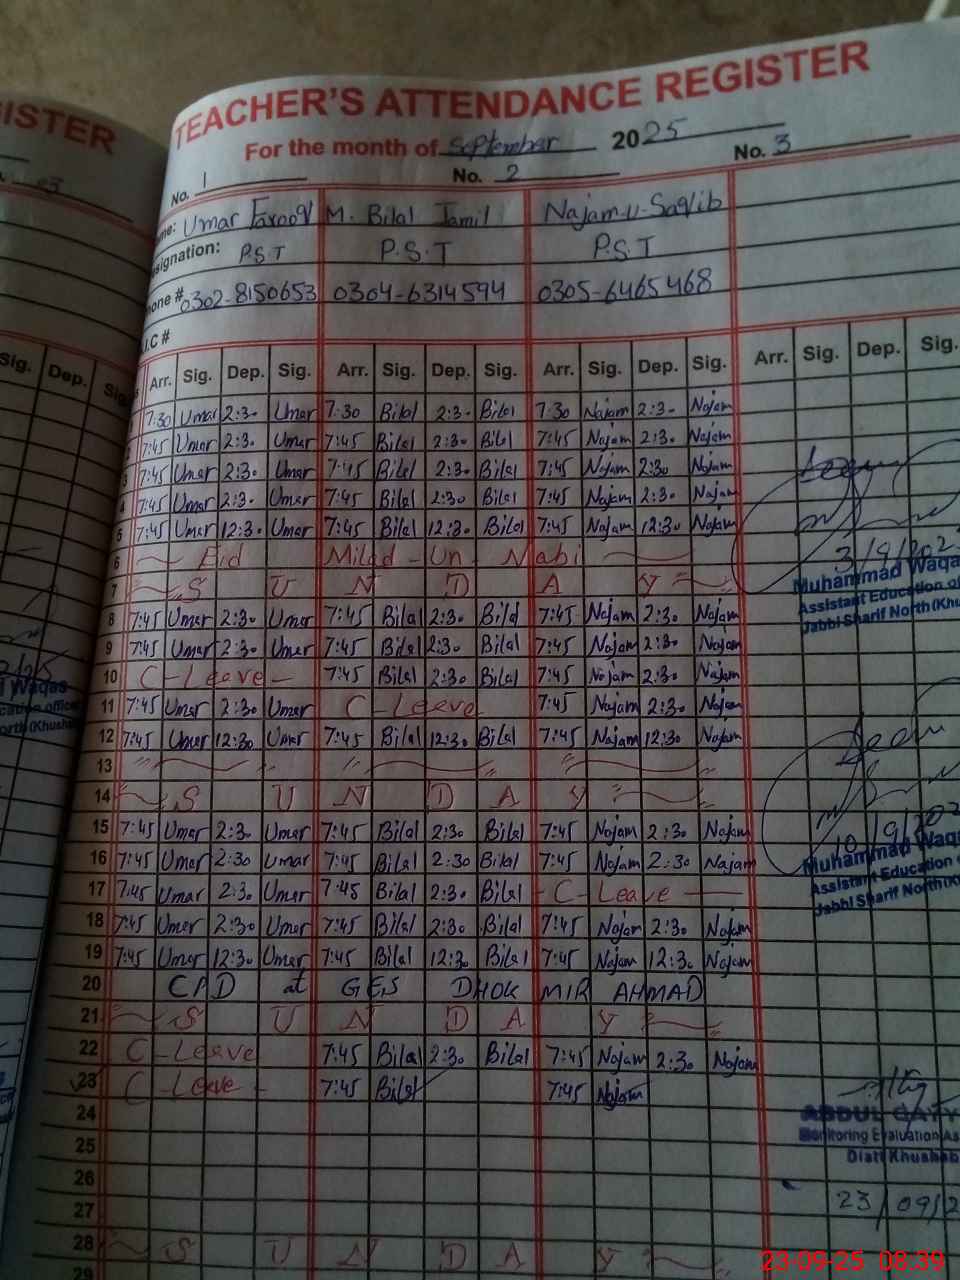 TEACHER'S ATTENDANCE REGISTER
For the month of September 2025
No. 1 No. 2 No. 3
Umar Farooq M. Bilal Jamil Najam-u-Saqlib
signation: P.S.T P.S.T P.S.T
one # 0302-8150653 0304-6314594 0305-6465468
I.C #
Arr. Sig. Dep. Sig. Arr. Sig. Dep. Sig. Arr. Sig. Dep. Sig. Arr. Sig. Dep. Sig.
7:30 Umar 2:30 Umar 7:30 Bilal 2:30 Bilal 7:30 Najam 2:30 Najam
7:45 Umar 2:30 Umar 7:45 Bilal 2:30 Bilal 7:45 Najam 2:30 Najam
3 7:45 Umar 2:30 Umar 7:45 Bilal 2:30 Bilal 7:45 Najam 2:30 Najam
4 7:45 Umar 2:30 Umar 7:45 Bilal 2:30 Bilal 7:45 Najam 2:30 Najam
5 7:45 Umar 12:30 Umar 7:45 Bilal 12:30 Bilal 7:45 Najam 12:30 Najam
6 Eid Milad-Un-Nabi
7 S U N D A Y
8 7:45 Umar 2:30 Umar 7:45 Bilal 2:30 Bilal 7:45 Najam 2:30 Najam
9 7:45 Umar 2:30 Umar 7:45 Bilal 2:30 Bilal 7:45 Najam 2:30 Najam
10 C-Leave 7:45 Bilal 2:30 Bilal 7:45 Najam 2:30 Najam
11 7:45 Umar 2:30 Umar C-Leave 7:45 Najam 2:30 Najam
12 7:45 Umar 12:30 Umar 7:45 Bilal 12:30 Bilal 7:45 Najam 12:30 Najam
13
14 S U N D A Y
15 7:45 Umar 2:30 Umar 7:45 Bilal 2:30 Bilal 7:45 Najam 2:30 Najam
16 7:45 Umar 2:30 Umar 7:45 Bilal 2:30 Bilal 7:45 Najam 2:30 Najam
17 7:45 Umar 2:30 Umar 7:45 Bilal 2:30 Bilal C-Leave
18 7:45 Umar 2:30 Umar 7:45 Bilal 2:30 Bilal 7:45 Najam 2:30 Najam
19 7:45 Umar 12:30 Umar 7:45 Bilal 12:30 Bilal 7:45 Najam 12:30 Najam
20 CPD at GES DHOK MIR AHMAD
21 S U N D A Y
22 C-Leave 7:45 Bilal 2:30 Bilal 7:45 Najam 2:30 Najam
23 C-Leave 7:45 Bilal 7:45 Najam
24
25
26
27
28 S U N D A Y
29
3/9/202
Muhammad Waqas
Assistant Education of
Jabbi Sharif North (Khu
10/9/202
Muhammad Waqa
Assistant Education
Jabbi Sharif North (K
ABDUL GAFY
Monitoring Evaluation As
Distt Khushab
23/09/2
GISTER
Sig. Dep. Sig.
Waqas
cation office
orth (Khusha
23-09-25 08:39